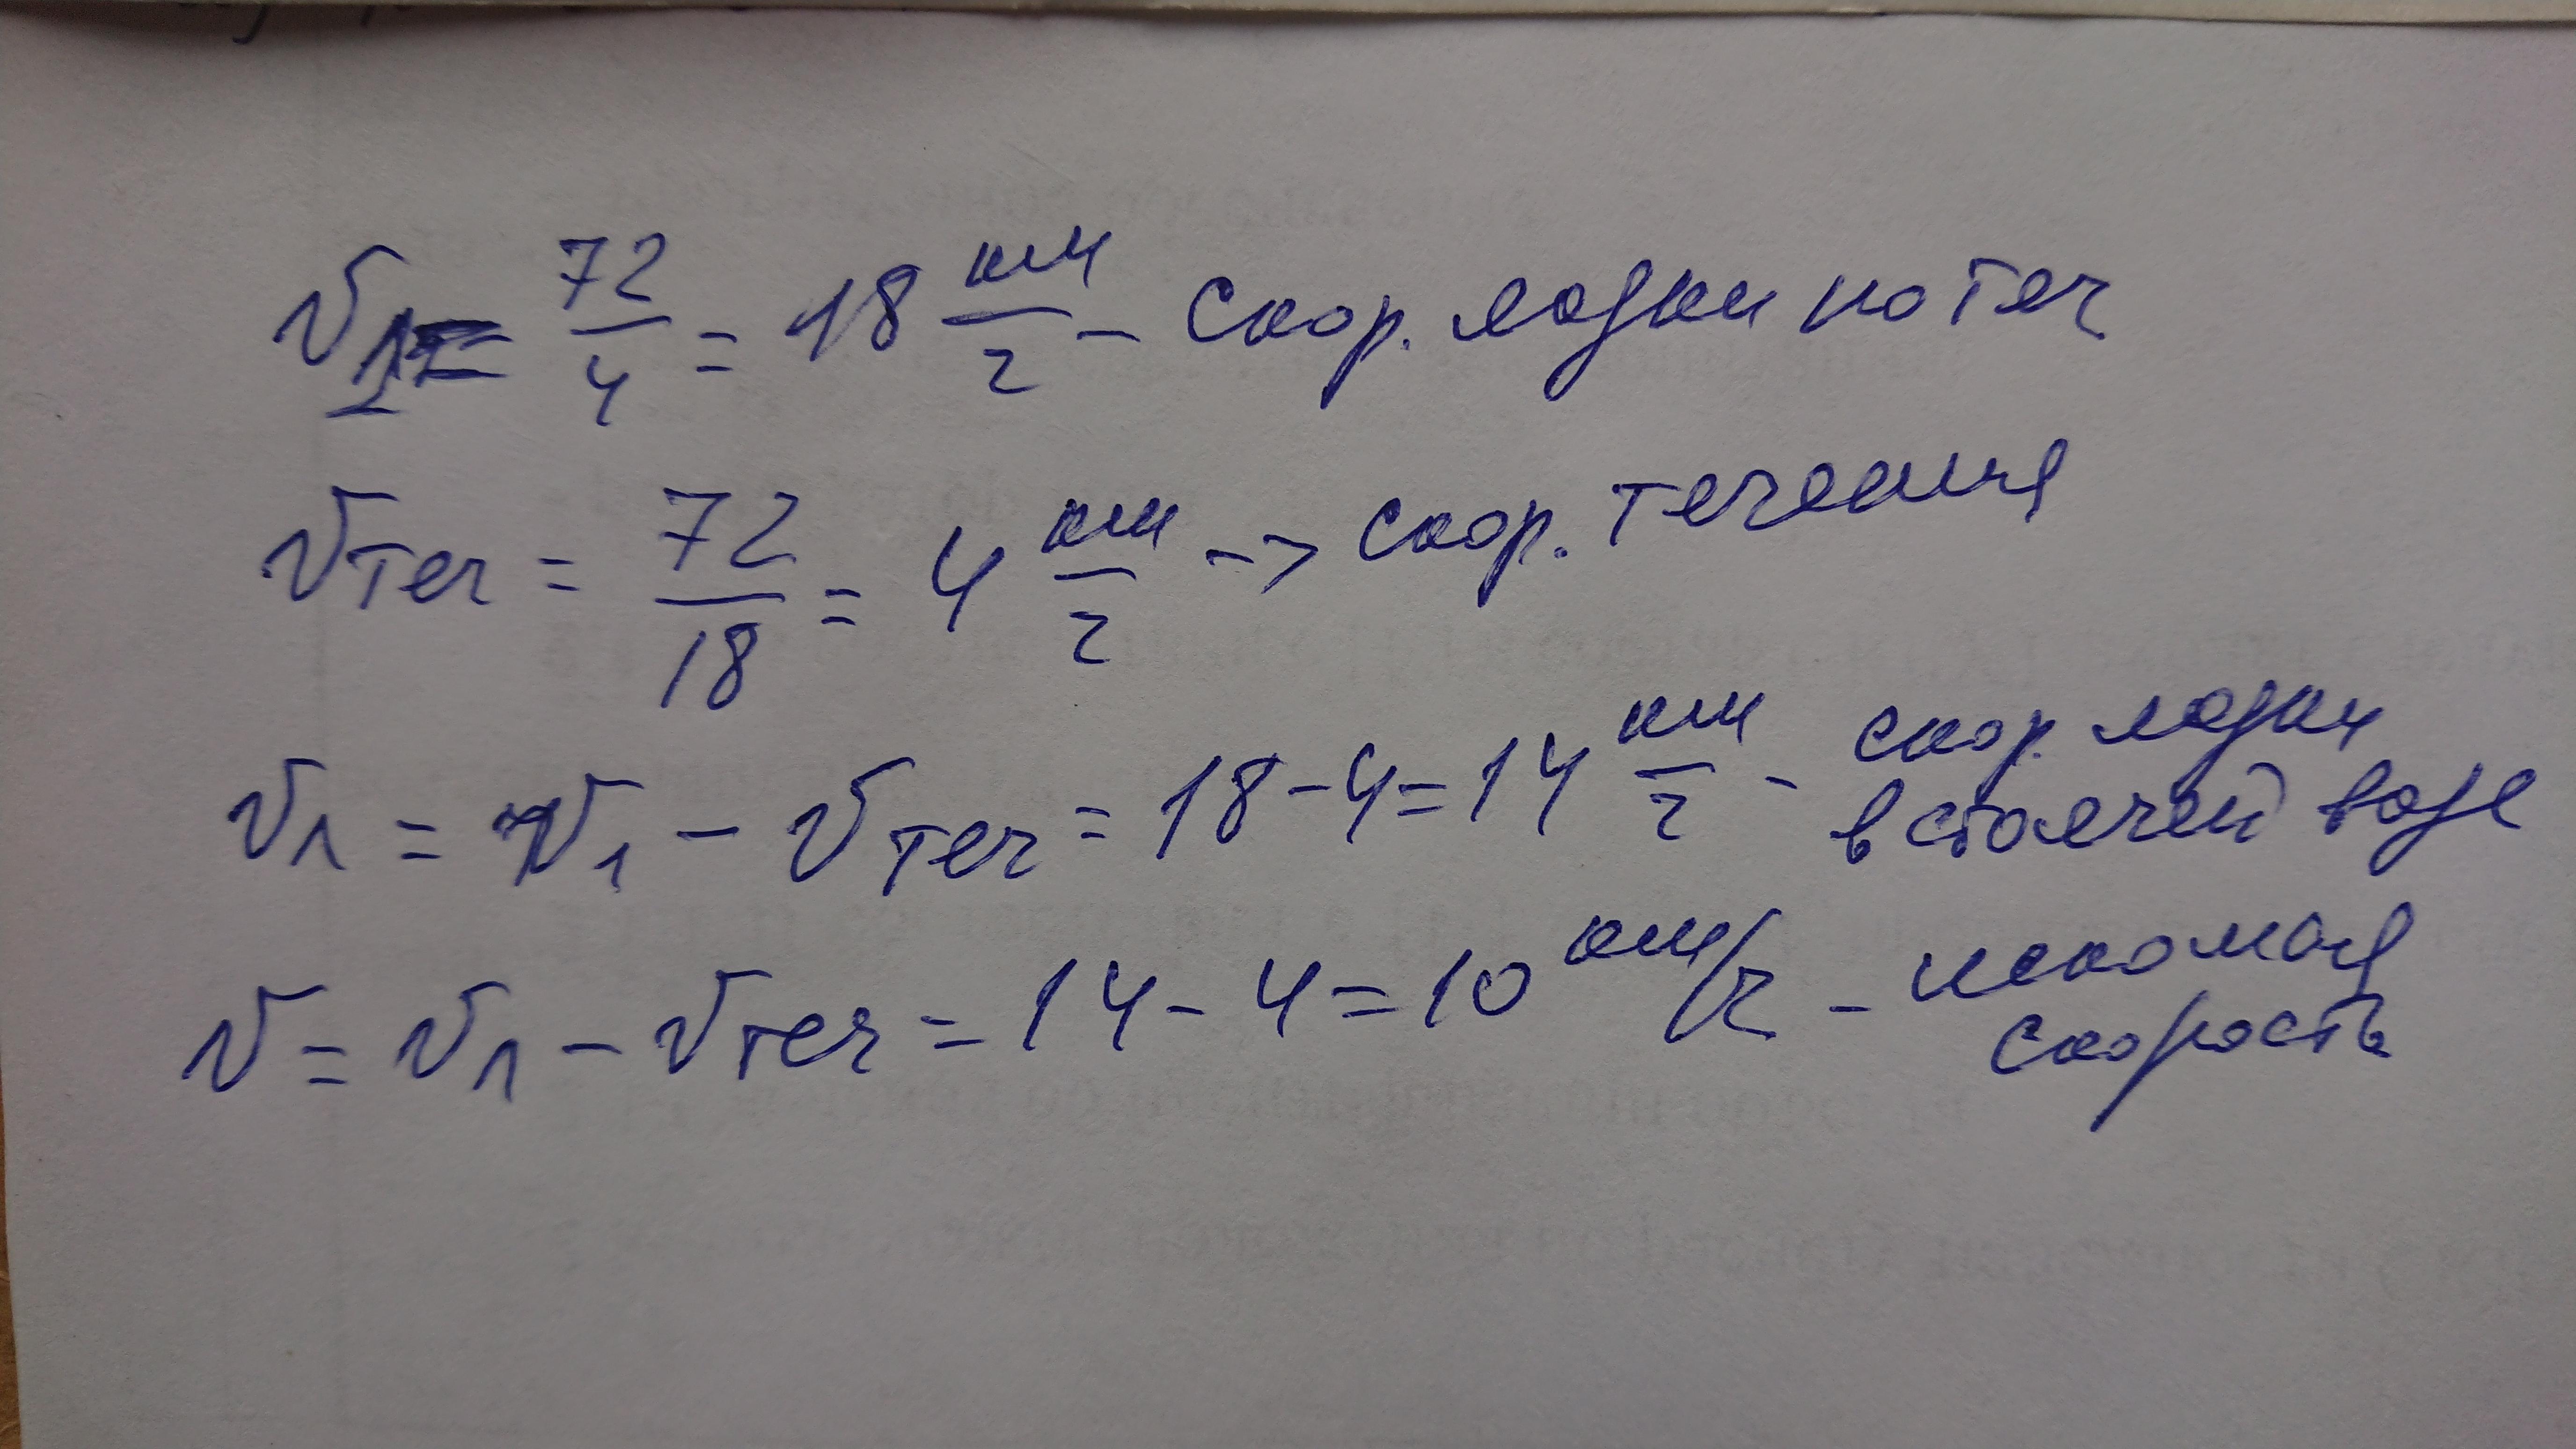 V₁ = 72/4 = 18 км/ч – скор. лодки по теч
Vтеч = 72/18 = 4 км/ч -> скор. течения
Vл = V₁ – Vтеч = 18 – 4 = 14 км/ч – скор. лодки
в стоячей воде
V = Vл – Vтеч = 14 – 4 = 10 км/ч – искомая
скорость